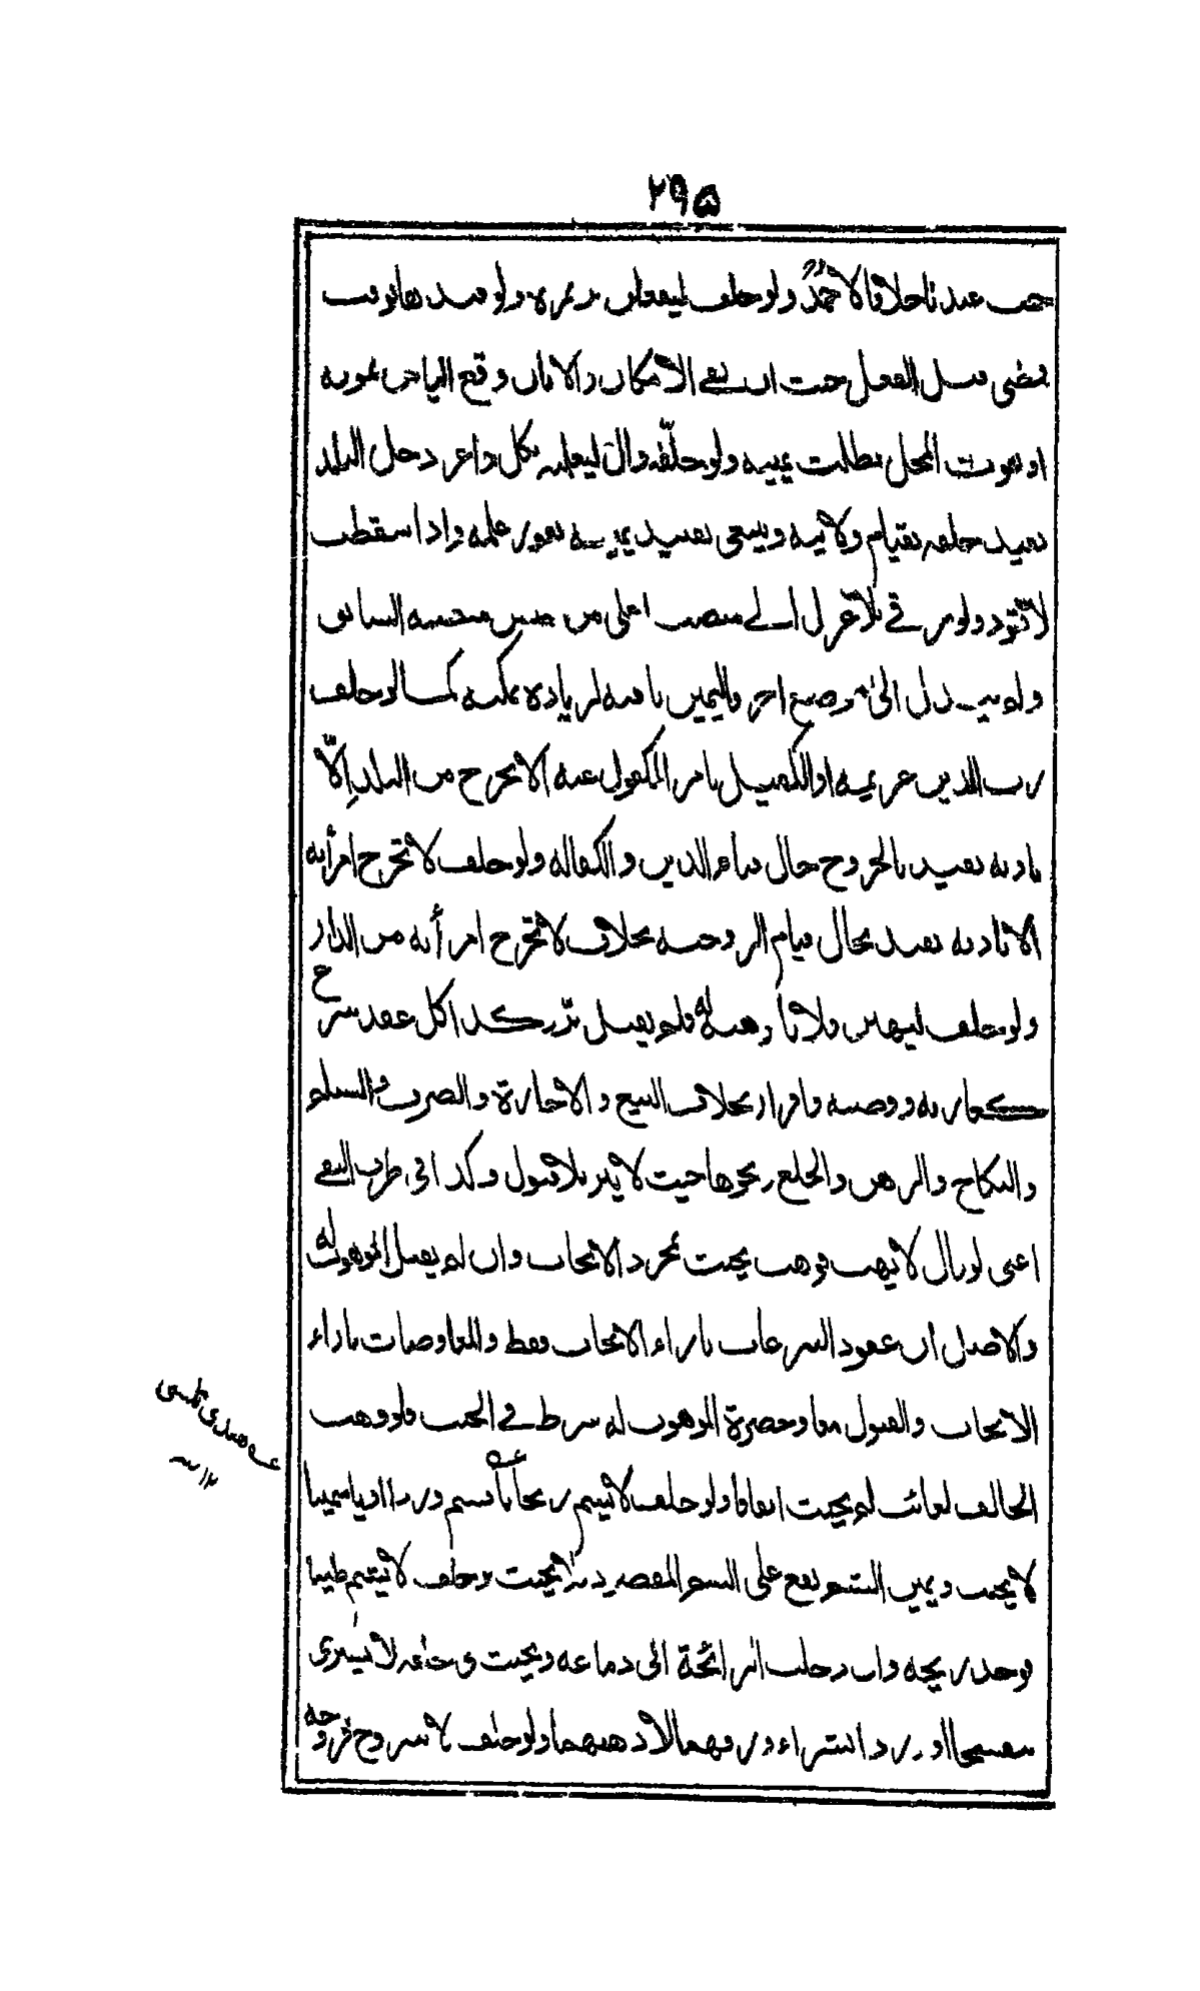 ٢٩٥
حنث عندنا خلافا لاحمد ولو حلف ليفعلن بر بمرة ولو قيدها بوقت
فمضى قبل الفعل حنث ان بقي الامكان والا بان وقع الياس بموته
او بفوت المحل بطلت يمينه ولو حلّفه وال ليعلمنه بكل داعر دخل البلد
تقيد حلفه بقيام ولايته وينبغي تقييد يمينه بفور علمه واذا سقطت
لا تعود ولو ترقى بلا عزل الى منصب اعلى
ولم ار ... الى موضع اخر فاليمين باقية لزيادة تمكنه كما لو حلف
رب الدين غريمه او الكفيل بامر المكفول عنه الا يخرج من البلد اِلّا
باذنه تقيد بالخروج حال قيام الدين والكفالة ولو حلف لا تخرج امرأته
الا باذنه تقيد بحال قيام الزوجية بخلاف لا تخرج امرأته من الدار
ولو حلف ليهبن فلانا وهبه له فلم يقبل برّ وكذا كل عقد تبرع
كعارية ووصية واقرار بخلاف البيع والاجارة والصرف والسلم
والنكاح والرهن والخلع ونحوها حيث لا يبر بلا قبول وكذا في طرف النفي
اعني لو قال لا يهب فوهب يحنث بمجرد الايجاب وان لم يقبل الموهوب له
والاصل ان عقود التبرعات بازاء الايجاب فقط والمعاوضات بازاء
الايجاب والقبول معا وحضرة الموهوب له شرط في الحنث فلو وهب
الحالف لغائب لم يحنث اتفاقا ولو حلف لا يشم ريحانا فشم وردا او ياسمينا
لا يحنث ويمين الشم يقع على الشم المقصود فلا يحنث لو حلف لا يشم طيبا
فوجد ريحه وان دخلت الرائحة الى دماغه ويحنث في حلفه لا يشتري
بنفسجا او وردا بشراء ورقهما لا دهنهما ولو حلف لا يتزوج فزوجه
١٢ منه